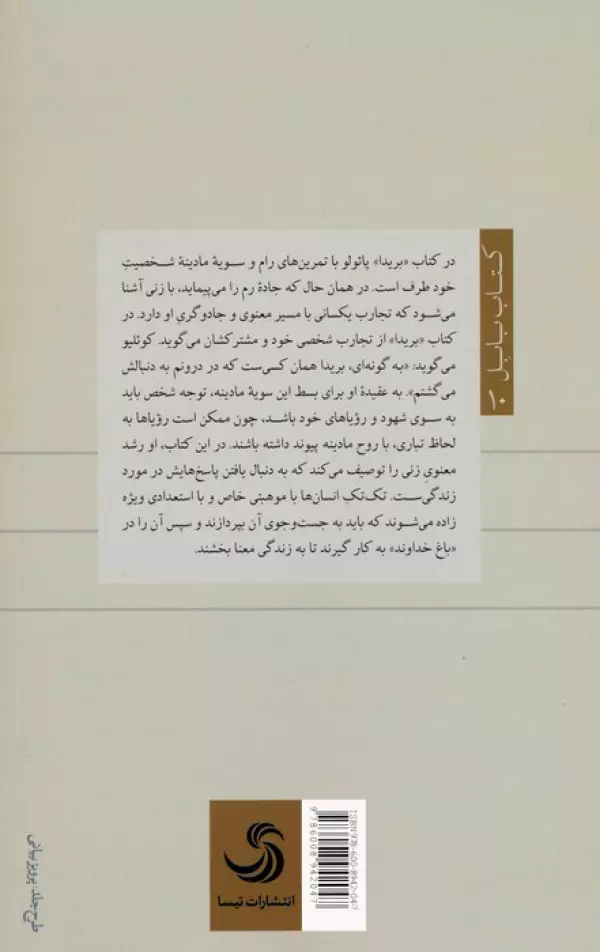 در کتاب «بریدا» پائولو با تمرین‌های رام و سویهٔ مادینهٔ شخصیتِ
خود طرف است. در همان حال که جادهٔ رم را می‌پیماید، با زنی آشنا
می‌شود که تجارب یکسانی با مسیر معنوی و جادوگریِ او دارد. در
کتاب «بریدا» از تجارب شخصی خود و مشترکشان می‌گوید. کوئلیو
می‌گوید: «به گونه‌ای، بریدا همان کسی‌ست که در درونم به دنبالش
می‌گشتم». به عقیدهٔ او برای بسط این سویهٔ مادینه، توجه شخص باید
به سوی شهود و رؤیاهای خود باشد، چون ممکن است رؤیاها به
لحاظ تباری، با روح مادینه پیوند داشته باشند. در این کتاب، او رشد
معنویِ زنی را توصیف می‌کند که به دنبال یافتن پاسخ‌هایش در مورد
زندگی‌ست. تک‌تکِ انسان‌ها با موهبتی خاص و با استعدادی ویژه
زاده می‌شوند که باید به جست‌وجوی آن بپردازند و سپس آن را در
«باغ خداوند» به کار گیرند تا به زندگی معنا بخشند.
کتاب بابِل
انتشارات تیسا
ISBN978-600-8942-04-7
9786008942047
طرح جلد: پرویز بیانی